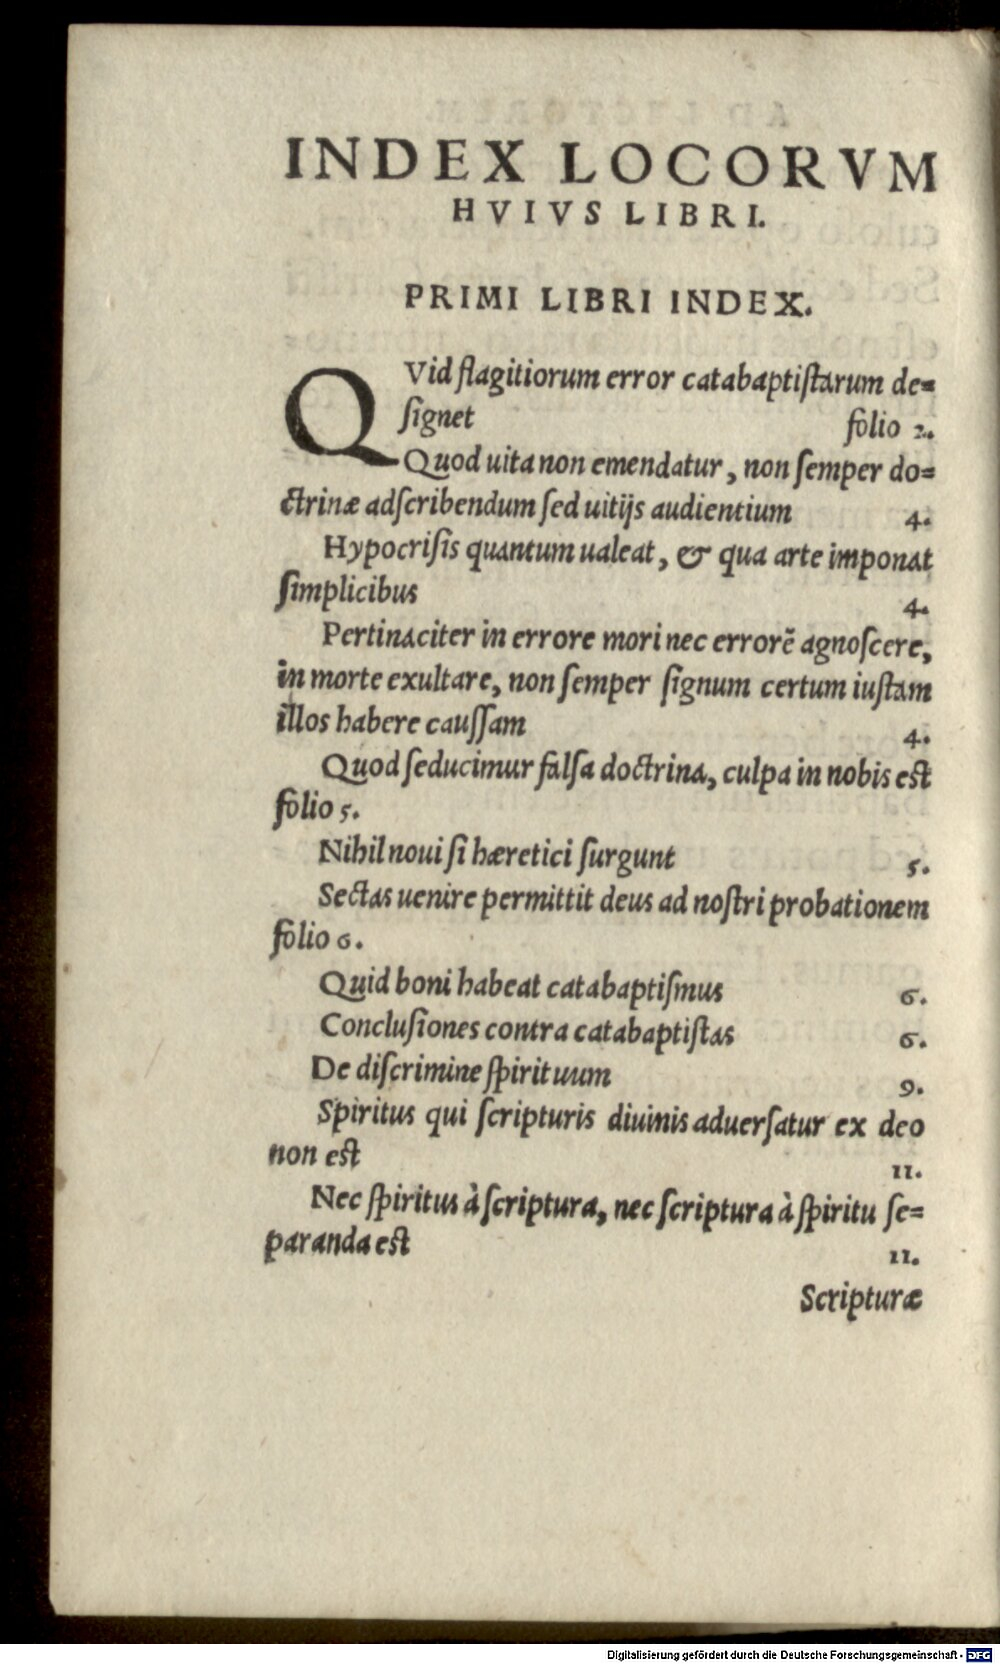 INDEX LOCORVM
HVIVS LIBRI.
PRIMI LIBRI INDEX.
QVid flagitiorum error catabaptiſtarum de=
ſignet folio 2.
Quod uita non emendatur, non ſemper do=
ctrinæ adſcribendum ſed uitijs audientium 4.
Hypocriſis quantum ualeat, & qua arte imponat
ſimplicibus 4.
Pertinaciter in errore mori nec errorẽ agnoſcere,
in morte exultare, non ſemper ſignum certum iuſtam
illos habere cauſſam 4.
Quod ſeducimur falſa doctrina, culpa in nobis est
folio 5.
Nihil noui ſi hæretici ſurgunt 5.
Sectas uenire permittit deus ad noſtri probationem
folio 6.
Quid boni habeat catabaptiſmus 6.
Concluſiones contra catabaptiſtas 6.
De diſcrimine ſpirituum 9.
Spiritus qui ſcripturis diuinis aduerſatur ex deo
non est 11.
Nec ſpiritus à ſcriptura, nec ſcriptura à ſpiritu ſe=
paranda est 11.
Scripturæ
Digitalisierung gefördert durch die Deutsche Forschungsgemeinschaft - DFG